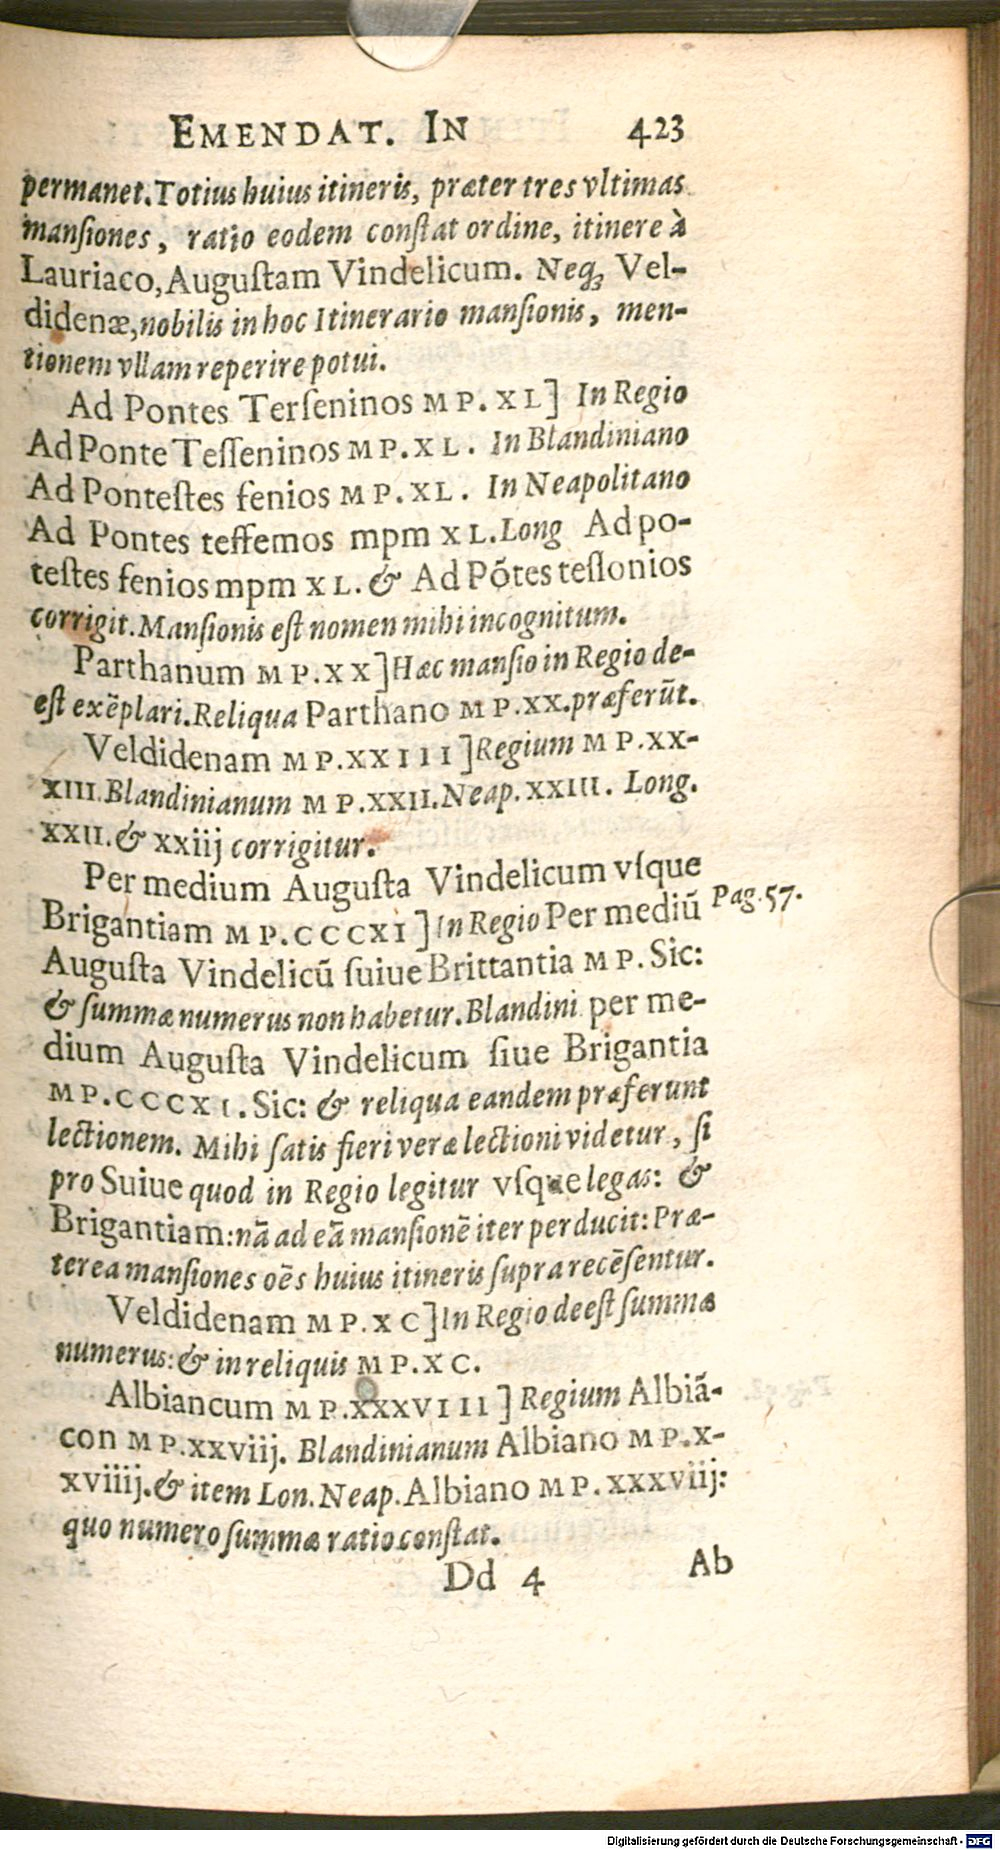 EMENDAT. IN 423
permanet. Totius huius itineris, præter tres vltimas
manſiones, ratio eodem conſtat ordine, itinere à
Lauriaco, Auguſtam Vindelicum. Neq; Vel-
didenæ, nobilis in hoc Itinerario manſionis, men-
tionem vllam reperire potui.
Ad Pontes Terſeninos MP. XL] In Regio
Ad Ponte Teſſeninos MP. XL. In Blandiniano
Ad Ponteſtes fenios MP. XL. In Neapolitano
Ad Pontes teffemos mpm XL. Long Ad po-
teſtes fenios mpm XL. & Ad Põtes teſlonios
corrigit. Manſionis eſt nomen mihi incognitum.
Parthanum MP. XX] Hæc manſio in Regio de-
eſt exẽplari. Reliqua Parthano MP. XX. præferũt.
Veldidenam MP. XXIII] Regium MP. XX-
XIII. Blandinianum MP. XXII. Neap. XXIII. Long.
XXII. & xxiij corrigitur.
Per medium Auguſta Vindelicum vſque
Brigantiam MP. CCCXI] In Regio Per mediũ
Pag. 57.
Auguſta Vindelicũ ſuiue Brittantia MP. Sic:
& ſummæ numerus non habetur. Blandini per me-
dium Auguſta Vindelicum ſiue Brigantia
MP. CCCXI. Sic: & reliqua eandem præferunt
lectionem. Mihi ſatis fieri veræ lectioni videtur, ſi
pro Suiue quod in Regio legitur vſque legas: &
Brigantiam: nã ad eã manſionẽ iter perducit: Præ-
terea manſiones oẽs huius itineris ſupra recẽſentur.
Veldidenam MP. XC] In Regio deeſt ſummæ
numerus: & in reliquis MP. XC.
Albiancum MP. XXXVIII] Regium Albiã-
con MP. xxviij. Blandinianum Albiano MP. X-
xviiij. & item Lon. Neap. Albiano MP. xxxviij:
quo numero ſummæ ratio conſtat.
Dd 4 Ab
Digitalisierung gefördert durch die Deutsche Forschungsgemeinschaft - DFG